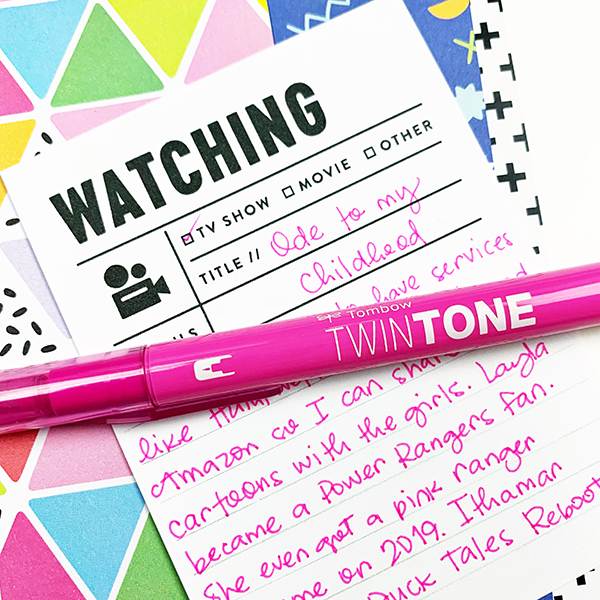 WATCHING
TV SHOW MOVIE OTHER
TITLE // Ode to my
Childhood
have services
Tombow
TWINTONE
like
Amazon so I can
cartoons with the girls. Layla
became a Power Rangers fan.
She even got a pink ranger
on 2019. Ithamar
Duck Tales Reboot